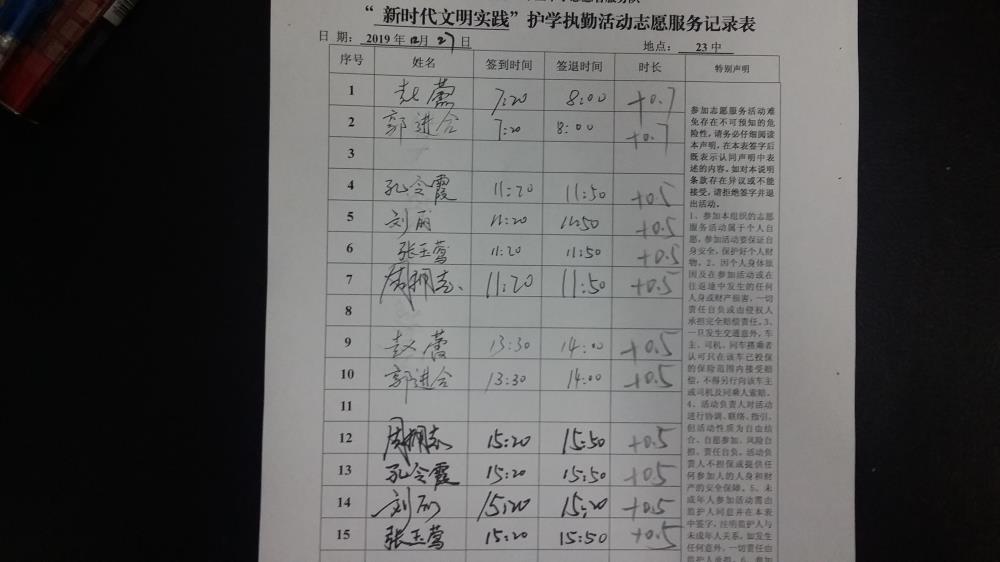 “ 新时代文明实践”护学执勤活动志愿服务记录表
日 期: 2019 年12月 27日 地点: 23 中
序号 姓名 签到时间 签退时间 时长 特别声明
1 7:20 8:00 +0.7
2 郭进合 7:20 8:00 +0.7
3
4 孔令霞 11:20 11:50 +0.5
5 刘丽 11:20 11:50 +0.5
6 张玉莺 11:20 11:50 +0.5
7 周拥志 11:20 11:50 +0.5
8
9 13:30 14:00 +0.5
10 郭进合 13:30 14:00 +0.5
11
12 周拥志 15:20 15:50 +0.5
13 孔令霞 15:20 15:50 +0.5
14 刘丽 15:20 15:20 +0.5
15 张玉莺 15:20 15:50 +0.5
参加志愿服务活动难
免存在不可预知的危
险性,请务必仔细阅读
本声明,在本表签字后
既表示认同声明中表
述的内容。如对本说明
条款存在异议或不能
接受,请拒绝签字并退
出活动。
1、参加本组织的志愿
服务活动属于个人自
愿,参加活动要保证自
身安全,保护好个人财
物。2、因个人身体原
因及在参加活动或在
往返途中发生的任何
人身或财产损害,一切
责任自负或由侵权人
承担完全赔偿责任。3、
一旦发生交通意外,车
主、司机、同车搭乘者
认可只在该车已投保
的保险范围内接受赔
偿,不得另行向该车主
或司机及同乘人索赔。
4、活动负责人对活动
进行协调、联络、指引,
但活动性质为自由结
合、自愿参加、风险自
担、责任自负。活动负
责人不担保或提供任
何参加人的人身和财
产的安全保障。5、未
成年人参加活动需由
监护人同意并在本表
中签字,注明监护人与
未成年人关系。如发生
任何意外,一切责任由
监护人承担。6、参加